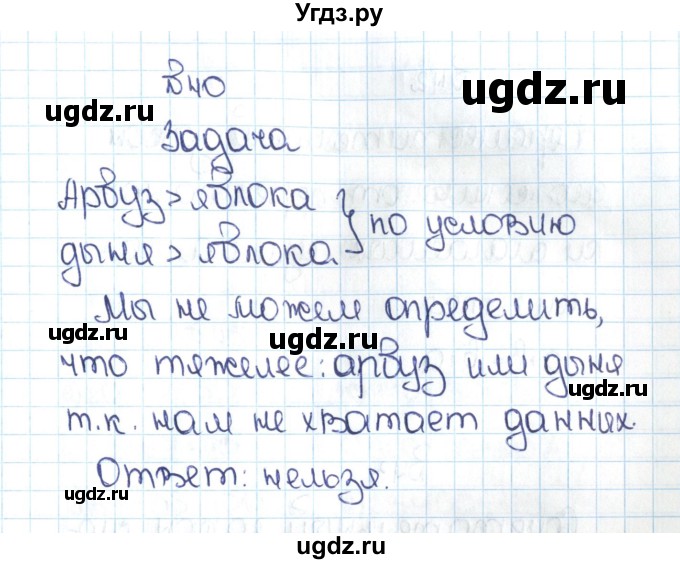 Угдз.ру
в40
ugdz.ru
ugdz.ru
Задача
ugdz.ru
Арвуз > яблока
дыня > яблока } по условию
ugdz.ru
Мы не можем определить,
ugdz.ru
ugdz.ru
что тяжелее: арвуз или дыня
ugdz.ru
т.к. нам не хватает данных.
Ответ: нельзя.
ugdz.ru
ugdz.ru